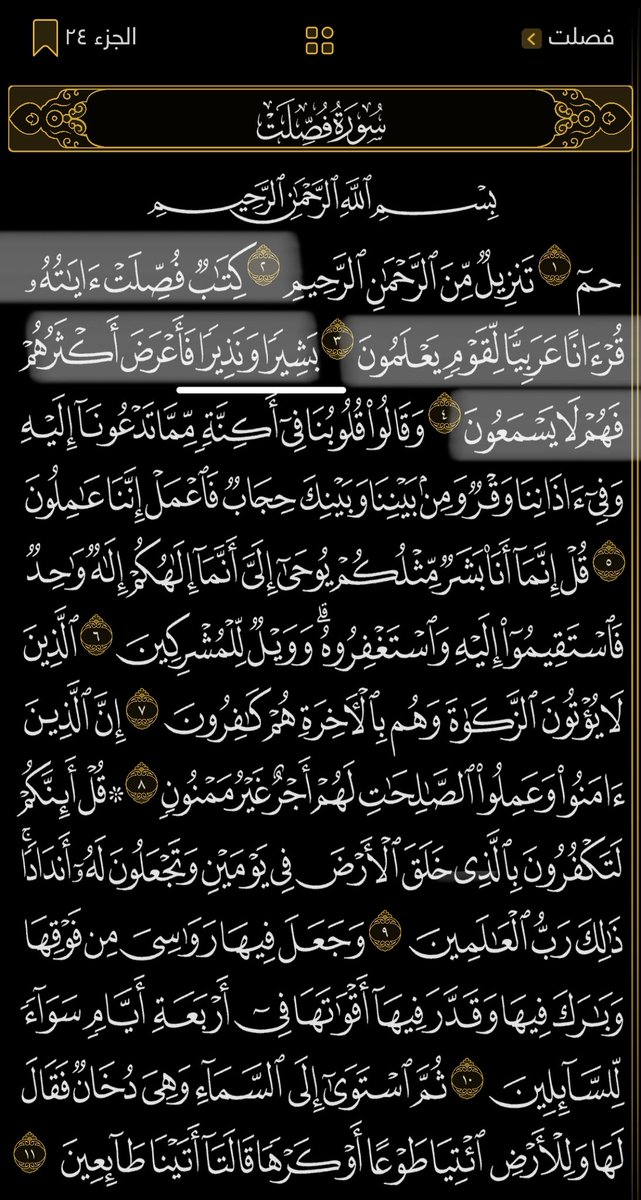 فصلت
الجزء ٢٤
سُورَةُ فُصِّلَتْ
بِسْمِ ٱللَّهِ ٱلرَّحْمَٰنِ ٱلرَّحِيمِ
حمٓ ١ تَنزِيلٌ مِّنَ ٱلرَّحْمَٰنِ ٱلرَّحِيمِ ٢ كِتَٰبٌ فُصِّلَتْ ءَايَٰتُهُۥ
قُرْءَانًا عَرَبِيًّا لِّقَوْمٍ يَعْلَمُونَ ٣ بَشِيرًا وَنَذِيرًا فَأَعْرَضَ أَكْثَرُهُمْ
فَهُمْ لَا يَسْمَعُونَ ٤ وَقَالُوا۟ قُلُوبُنَا فِىٓ أَكِنَّةٍ مِّمَّا تَدْعُونَآ إِلَيْهِ
وَفِىٓ ءَاذَانِنَا وَقْرٌ وَمِنۢ بَيْنِنَا وَبَيْنِكَ حِجَابٌ فَٱعْمَلْ إِنَّنَا عَٰمِلُونَ
٥ قُلْ إِنَّمَآ أَنَا۠ بَشَرٌ مِّثْلُكُمْ يُوحَىٰٓ إِلَىَّ أَنَّمَآ إِلَٰهُكُمْ إِلَٰهٌ وَٰحِدٌ
فَٱسْتَقِيمُوٓا۟ إِلَيْهِ وَٱسْتَغْفِرُوهُ ۗ وَوَيْلٌ لِّلْمُشْرِكِينَ ٦ ٱلَّذِينَ
لَا يُؤْتُونَ ٱلزَّكَوٰةَ وَهُم بِٱلْءَاخِرَةِ هُمْ كَٰفِرُونَ ٧ إِنَّ ٱلَّذِينَ
ءَامَنُوا۟ وَعَمِلُوا۟ ٱلصَّٰلِحَٰتِ لَهُمْ أَجْرٌ غَيْرُ مَمْنُونٍ ٨ ۞ قُلْ أَئِنَّكُمْ
لَتَكْفُرُونَ بِٱلَّذِى خَلَقَ ٱلْأَرْضَ فِى يَوْمَيْنِ وَتَجْعَلُونَ لَهُۥٓ أَندَادًا ۚ
ذَٰلِكَ رَبُّ ٱلْعَٰلَمِينَ ٩ وَجَعَلَ فِيهَا رَوَٰسِىَ مِن فَوْقِهَا
وَبَٰرَكَ فِيهَا وَقَدَّرَ فِيهَآ أَقْوَٰتَهَا فِىٓ أَرْبَعَةِ أَيَّامٍ سَوَآءً
لِّلسَّآئِلِينَ ١٠ ثُمَّ ٱسْتَوَىٰٓ إِلَى ٱلسَّمَآءِ وَهِىَ دُخَانٌ فَقَالَ
لَهَا وَلِلْأَرْضِ ٱئْتِيَا طَوْعًا أَوْ كَرْهًا قَالَتَآ أَتَيْنَا طَآئِعِينَ ١١